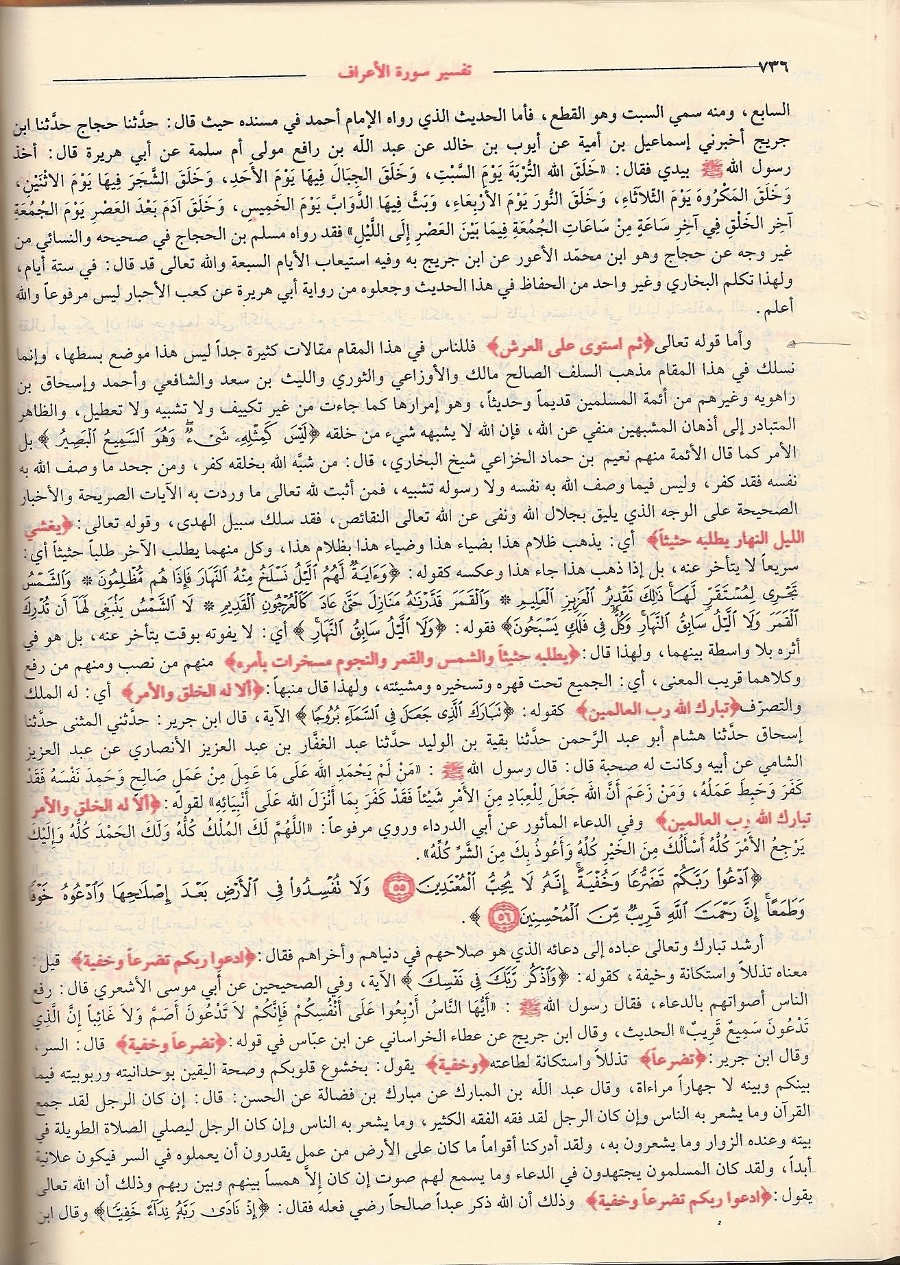 ٧٣٦
تفسير سورة الأعراف
السابع، ومنه سمي السبت وهو القطع، فأما الحديث الذي رواه الإمام أحمد في مسنده حيث قال: حدَّثنا حجاج حدَّثنا ابن
جريج أخبرني إسماعيل بن أمية عن أيوب بن خالد عن عبد اللَّه بن رافع مولى أم سلمة عن أبي هريرة قال: أخذ
رسول اللهﷺ بيدي فقال: «خَلَقَ الله التُّرْبَةَ يَوْمَ السَّبْتِ، وَخَلَقَ الجِبَالَ فِيهَا يَوْمَ الأَحَدِ، وَخَلَقَ الشَّجَرَ فِيهَا يَوْمَ الاثْنَيْنِ،
وَخَلَقَ المَكْرُوهَ يَوْمَ الثّلاثَاءِ، وَخَلَقَ النُّورَ يَوْمَ الأَرْبعَاءِ، وَبَثَّ فِيهَا الدَّوَابَّ يَوْمَ الخَمِيسِ، وَخَلَقَ آدَمَ بَعْدَ العَصْرِ يَوْمَ الجُمُعَةِ
آخِرَ الخَلْقِ فِي آخِرِ سَاعَةٍ مِنْ سَاعَاتِ الجُمُعَةِ فِيمَا بَيْنَ العَصْرِ إِلَى اللَّيْلِ» فقد رواه مسلم بن الحجاج في صحيحه والنسائي من
غير وجه عن حجاج وهو ابن محمّد الأعور عن ابن جريج به وفيه استيعاب الأيام السبعة والله تعالى قد قال: في ستة أيام،
ولهذا تكلم البخاري وغير واحد من الحفاظ في هذا الحديث وجعلوه من رواية أبي هريرة عن كعب الأحبار ليس مرفوعاً والله
أعلم.
وأما قوله تعالى﴿ثم استوى على العرش﴾ فللناس في هذا المقام مقالات كثيرة جداً ليس هذا موضع بسطها، وإنما
نسلك في هذا المقام مذهب السلف الصالح مالك والأوزاعي والثوري والليث بن سعد والشافعي وأحمد وإسحاق بن
راهويه وغيرهم من أئمة المسلمين قديماً وحديثاً، وهو إمرارها كما جاءت من غير تكييف ولا تشبيه ولا تعطيل، والظاهر
المتبادر إلى أذهان المشبهين منفي عن الله، فإن الله لا يشبهه شيء من خلقه ﴿لَيْسَ كَمِثْلِهِ شَيْءٌ وَهُوَ السَّمِيعُ الْبَصِيرُ﴾ بل
الأمر كما قال الأئمة منهم نعيم بن حماد الخزاعي شيخ البخاري، قال: من شبَّه الله بخلقه كفر، ومن جحد ما وصف الله به
نفسه فقد كفر، وليس فيما وصف الله به نفسه ولا رسوله تشبيه، فمن أثبت لله تعالى ما وردت به الآيات الصريحة والأخبار
الصحيحة على الوجه الذي يليق بجلال الله ونفى عن الله تعالى النقائص، فقد سلك سبيل الهدى، وقوله تعالى:﴿يغشي
الليل النهار يطلبه حثيثاً﴾ أي: يذهب ظلام هذا بضياء هذا وضياء هذا بظلام هذا، وكل منهما يطلب الآخر طلباً حثيثاً أي:
سريعاً لا يتأخر عنه، بل إذا ذهب هذا جاء هذا وعكسه كقوله: ﴿وَءَايَةٌ لَّهُمُ الَّيْلُ نَسْلَخُ مِنْهُ النَّهَارَ فَإِذَا هُم مُّظْلِمُونَ * وَالشَّمْسُ
تَجْرِي لِمُسْتَقَرٍّ لَّهَا ذَٰلِكَ تَقْدِيرُ الْعَزِيزِ الْعَلِيمِ * وَالْقَمَرَ قَدَّرْنَٰهُ مَنَازِلَ حَتَّىٰ عَادَ كَالْعُرْجُونِ الْقَدِيمِ * لَا الشَّمْسُ يَنۢبَغِي لَهَا أَن تُدْرِكَ
الْقَمَرَ وَلَا الَّيْلُ سَابِقُ النَّهَارِ وَكُلٌّ فِي فَلَكٍ يَسْبَحُونَ﴾ فقوله: ﴿وَلَا الَّيْلُ سَابِقُ النَّهَارِ﴾ أي: لا يفوته بوقت يتأخر عنه، بل هو في
أثره بلا واسطة بينهما، ولهذا قال:﴿يطلبه حثيثاً والشمس والقمر والنجوم مسخرات بأمره﴾ منهم من نصب ومنهم من رفع
وكلاهما قريب المعنى، أي: الجميع تحت قهره وتسخيره ومشيئته، ولهذا قال منبهاً:﴿ألا له الخلق والأمر﴾ أي: له الملك
والتصرّف﴿تبارك الله رب العالمين﴾ كقوله: ﴿تَبَارَكَ الَّذِي جَعَلَ فِي السَّمَاءِ بُرُوجًا﴾ الآية، قال ابن جرير: حدَّثني المثنى حدَّثنا
إسحاق حدَّثنا هشام أبو عبد الرَّحمن حدَّثنا بقية بن الوليد حدَّثنا عبد الغفَّار بن عبد العزيز الأنصاري عن عبد العزيز
الشامي عن أبيه وكانت له صحبة قال: قال رسول اللهﷺ : «مَنْ لَمْ يَحْمِدِ الله عَلَى مَا عَمِلَ مِنْ عَمَلٍ صَالِحٍ وَحَمِدَ نَفْسَهُ فَقَدْ
كَفَرَ وَحَبِطَ عَمَلُهُ، وَمَنْ زَعَمَ أَنَّ الله جَعَلَ لِلْعِبَادِ مِنَ الأَمْرِ شَيْئاً فَقَدْ كَفَرَ بِمَا أَنْزَلَ الله عَلَى أَنْبِيَائِهِ» لقوله:﴿ألا له الخلق والأمر
تبارك الله رب العالمين﴾ وفي الدعاء المأثور عن أبي الدرداء وروي مرفوعاً: «اللَّهُمَّ لَكَ المُلْكُ كُلُّهُ وَلَكَ الحَمْدُ كُلُّهُ وَإِلَيْكَ
يَرْجِعُ الأَمْرُ كُلُّهُ أَسْأَلُكَ مِنَ الخَيْرِ كُلِّهِ وَأَعُوذُ بِكَ مِنَ الشَّرِّ كُلِّهِ».
﴿ادْعُوا رَبَّكُمْ تَضَرُّعًا وَخُفْيَةً إِنَّهُ لَا يُحِبُّ الْمُعْتَدِينَ ٥٥ وَلَا تُفْسِدُوا فِي الْأَرْضِ بَعْدَ إِصْلَٰحِهَا وَادْعُوهُ خَوْفًا
وَطَمَعًا إِنَّ رَحْمَتَ اللَّهِ قَرِيبٌ مِّنَ الْمُحْسِنِينَ ٥٦ ﴾.
أرشد تبارك وتعالى عباده إلى دعائه الذي هو صلاحهم في دنياهم وأخراهم فقال:﴿ادعوا ربكم تضرعاً وخفية﴾ قيل:
معناه تذللاً واستكانة وخيفة، كقوله: ﴿وَاذْكُر رَّبَّكَ فِي نَفْسِكَ﴾ الآية، وفي الصحيحين عن أبي موسى الأشعري قال: رفع
الناس أصواتهم بالدعاء، فقال رسول اللهﷺ : «أَيُّهَا النَّاسُ أَرْبِعُوا عَلَى أَنْفُسِكُمْ فَإِنَّكُمْ لاَ تَدْعُونَ أَصَمَّ وَلاَ غَائِباً إِنَّ الَّذِي
تَدْعُونَ سَمِيعٌ قَرِيبٌ» الحديث، وقال ابن جريج عن عطاء الخراساني عن ابن عبّاس في قوله:﴿تضرعاً وخفية﴾ قال: السر،
وقال ابن جرير:﴿تضرعاً﴾ تذللاً واستكانة لطاعته﴿وخفية﴾ يقول: بخشوع قلوبكم وصحة اليقين بوحدانيته وربوبيته فيما
بينكم وبينه لا جهاراً مراءاة، وقال عبد اللَّه بن المبارك عن مبارك بن فضالة عن الحسن: قال: إن كان الرجل لقد جمع
القرآن وما يشعر به الناس وإن كان الرجل لقد فقه الفقه الكثير، وما يشعر به الناس وإن كان الرجل ليصلي الصلاة الطويلة في
بيته وعنده الزوار وما يشعرون به، ولقد أدركنا أقواماً ما كان على الأرض من عمل يقدرون أن يعملوه في السر فيكون علانية
أبداً، ولقد كان المسلمون يجتهدون في الدعاء وما يسمع لهم صوت إن كان إلاَّ همساً بينهم وبين ربهم وذلك أن الله تعالى
يقول:﴿ادعوا ربكم تضرعاً وخفية﴾ وذلك أن الله ذكر عبداً صالحاً رضي فعله فقال: ﴿إِذْ نَادَىٰ رَبَّهُ نِدَاءً خَفِيًّا﴾ وقال ابن